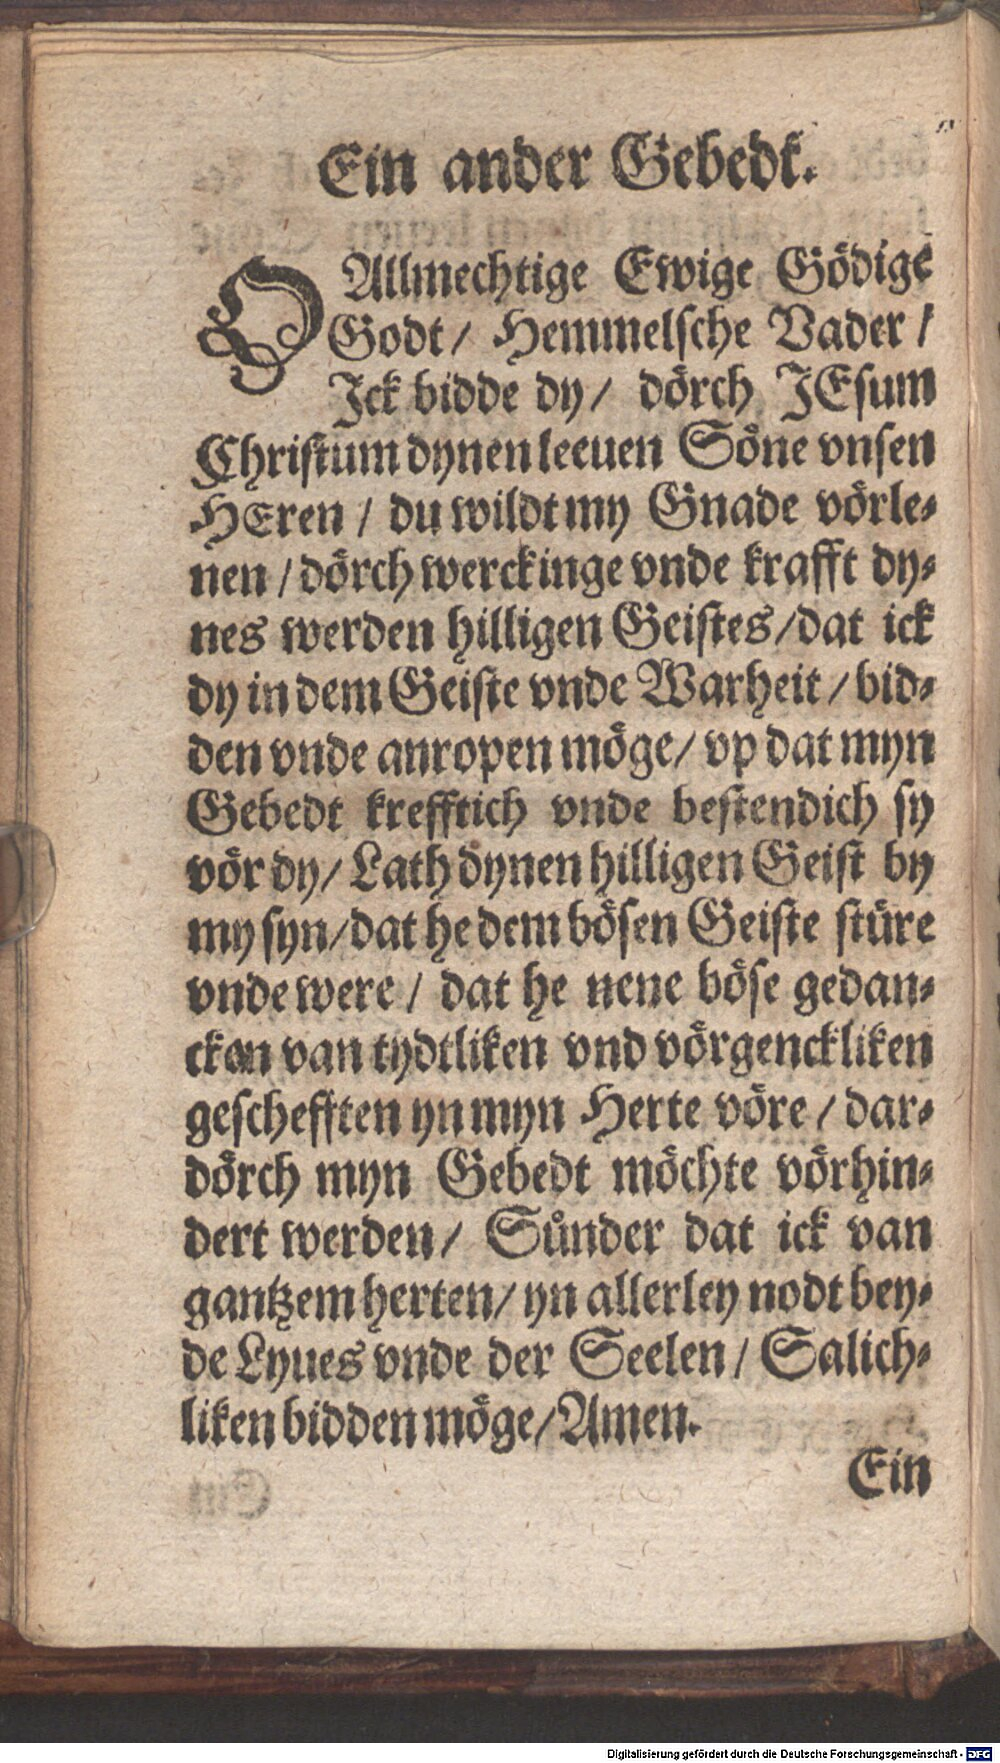 Ein ander Gebedt.
O Allmechtige Ewige Gödige
Godt / Hemmelsche Vader /
Ick bidde dy / dörch JEsum
Christum dynen leeuen Söne vnsen
HEren / du wildt my Gnade vörle⸗
nen / dörch werckinge vnde krafft dy⸗
nes werden hilligen Geistes / dat ick
dy in dem Geiste vnde Warheit / bid⸗
den vnde anropen möge / vp dat myn
Gebedt krefftich vnde bestendich sy
vör dy / Lath dynen hilligen Geist by
my syn / dat he dem bösen Geiste stüre
vnde were / dat he nene böse gedan⸗
cken van tydtliken vnd vörgenckliken
geschefften yn myn Herte vöre / dar⸗
dörch myn Gebedt möchte vörhin⸗
dert werden / Sůnder dat ick van
gantzem herten / yn allerley nodt bey⸗
de Lyues vnde der Seelen / Salich⸗
liken bidden möge / Amen.
Ein
Digitalisierung gefördert durch die Deutsche Forschungsgemeinschaft - DFG